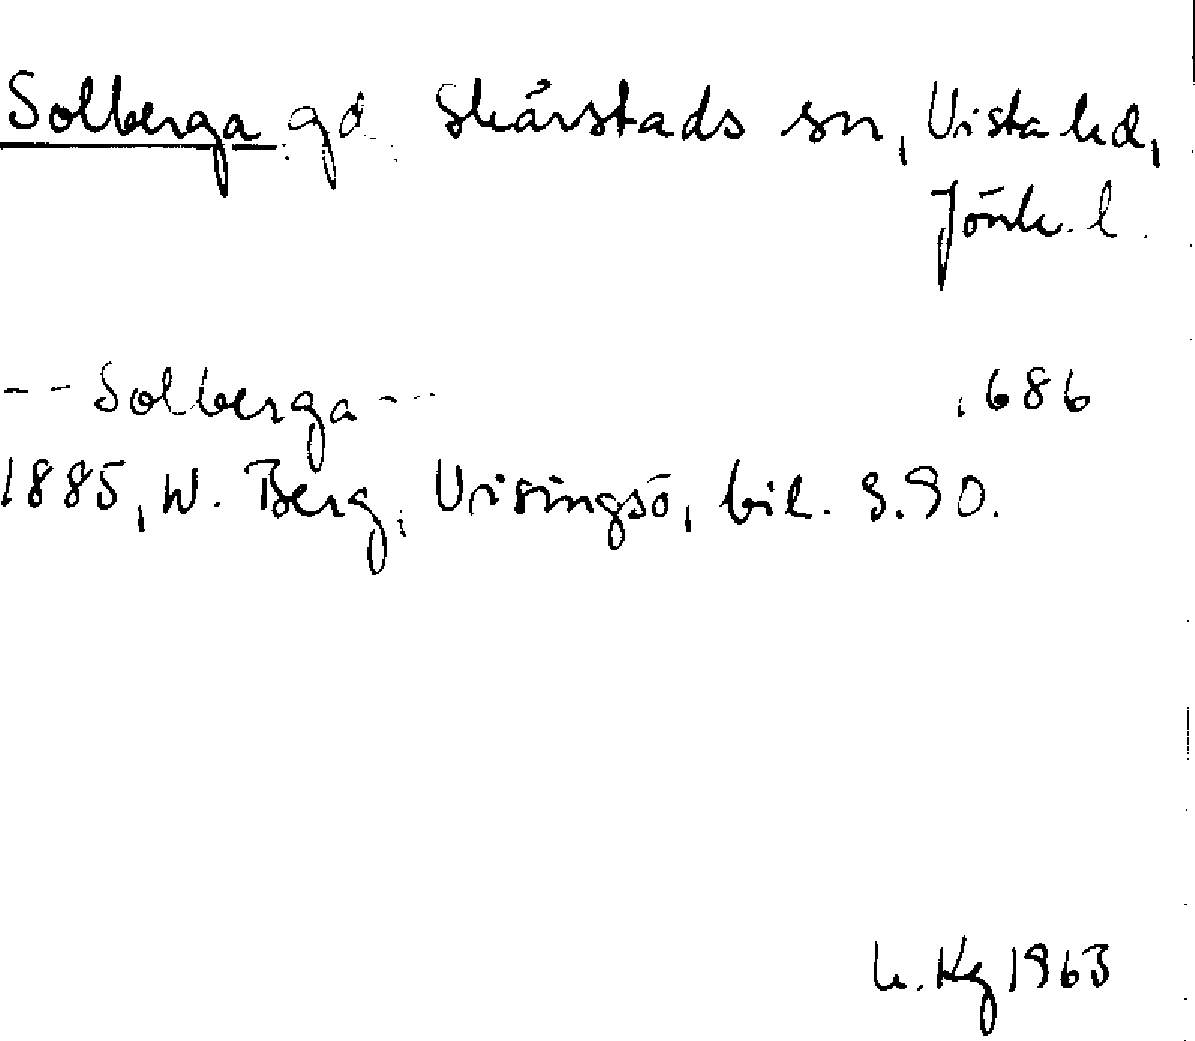 Solberga gd. Skärstads sn, Vista hd,
Jönk. l.
-- Solberga -- 686
1885, W. Berg, Visingsö, bil. S. 90.
h. Kg 1963